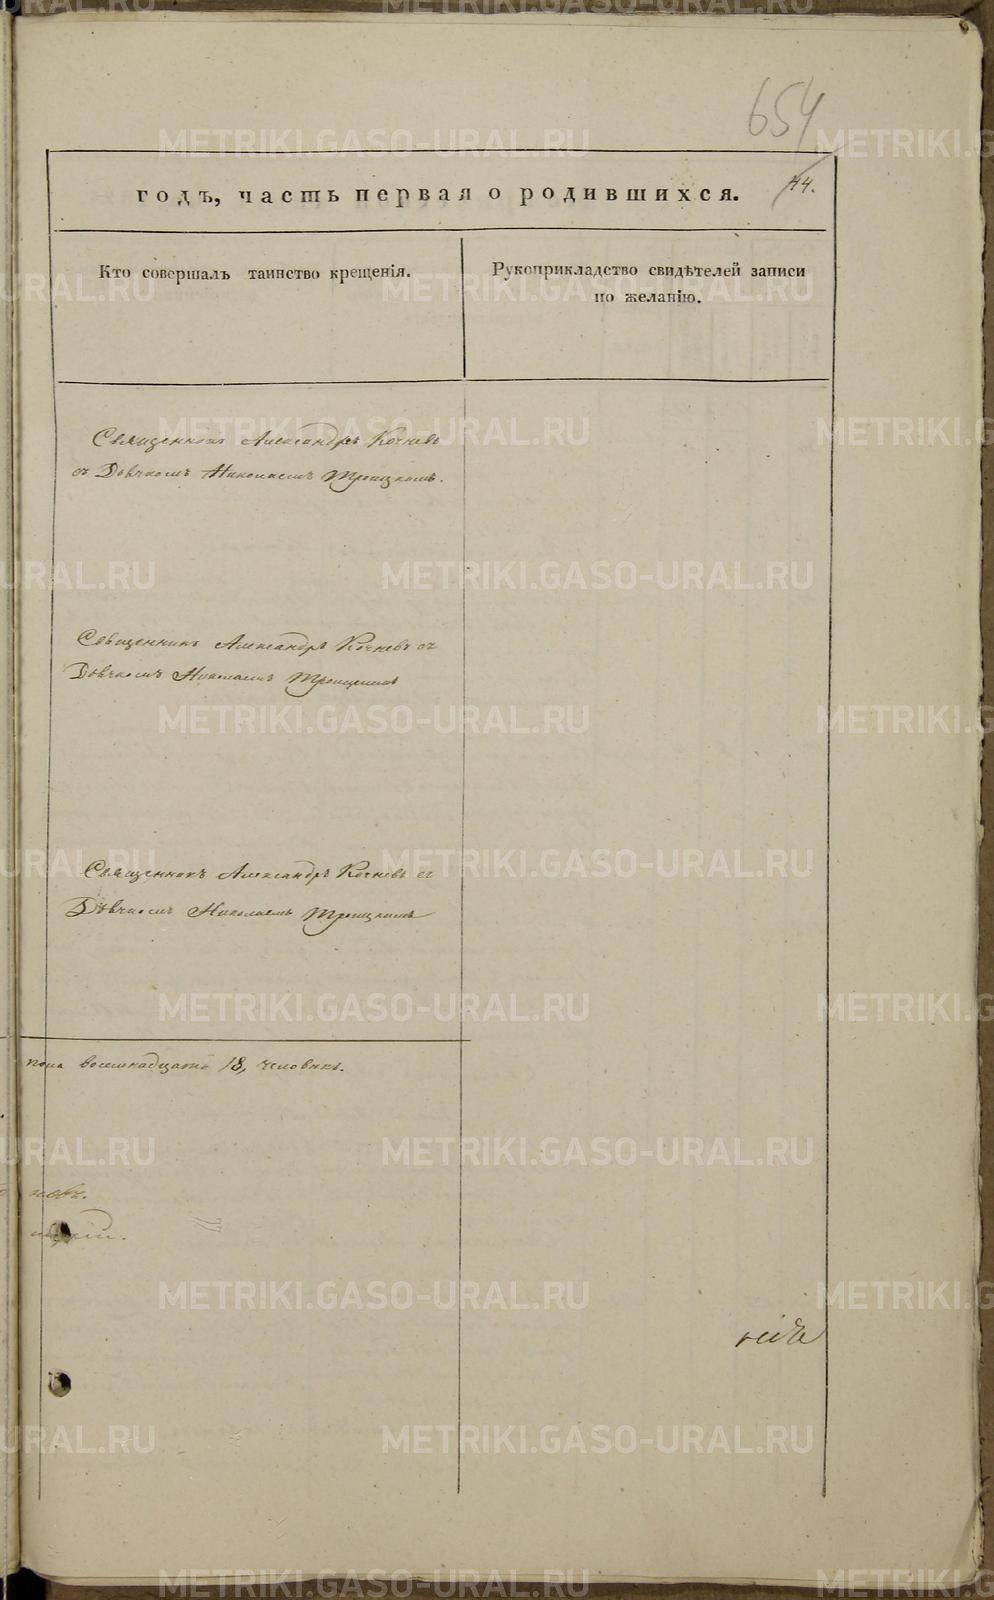 654
44.
годъ, часть первая о родившихся.
Кто совершалъ таинство крещенія.
Рукоприкладство свидѣтелей записи
по желанію.
Священникъ Александръ Кочневъ
съ Дьячкомъ Николаемъ Троицкимъ.
Священникъ Александръ Кочневъ съ
Дьячкомъ Николаемъ Троицкимъ
Священникъ Александръ Кочневъ съ
Дьячкомъ Николаемъ Троицкимъ
пола восемнадцать 18, человѣкъ.
METRIKI.GASO-URAL.RU